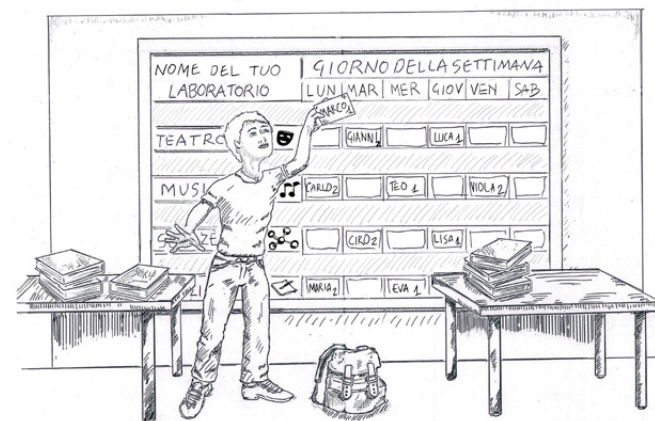 NOME DEL TUO LABORATORIO
GIORNO DELLA SETTIMANA
LUN MAR MER GIOV VEN SAB
MARCO 1
TEATRO GIANNI 2 LUCA 1
MUSI CARLO 2 TEO 1 VIOLA 2
CIRO 2 LISA 1
MARIA 2 EVA 1